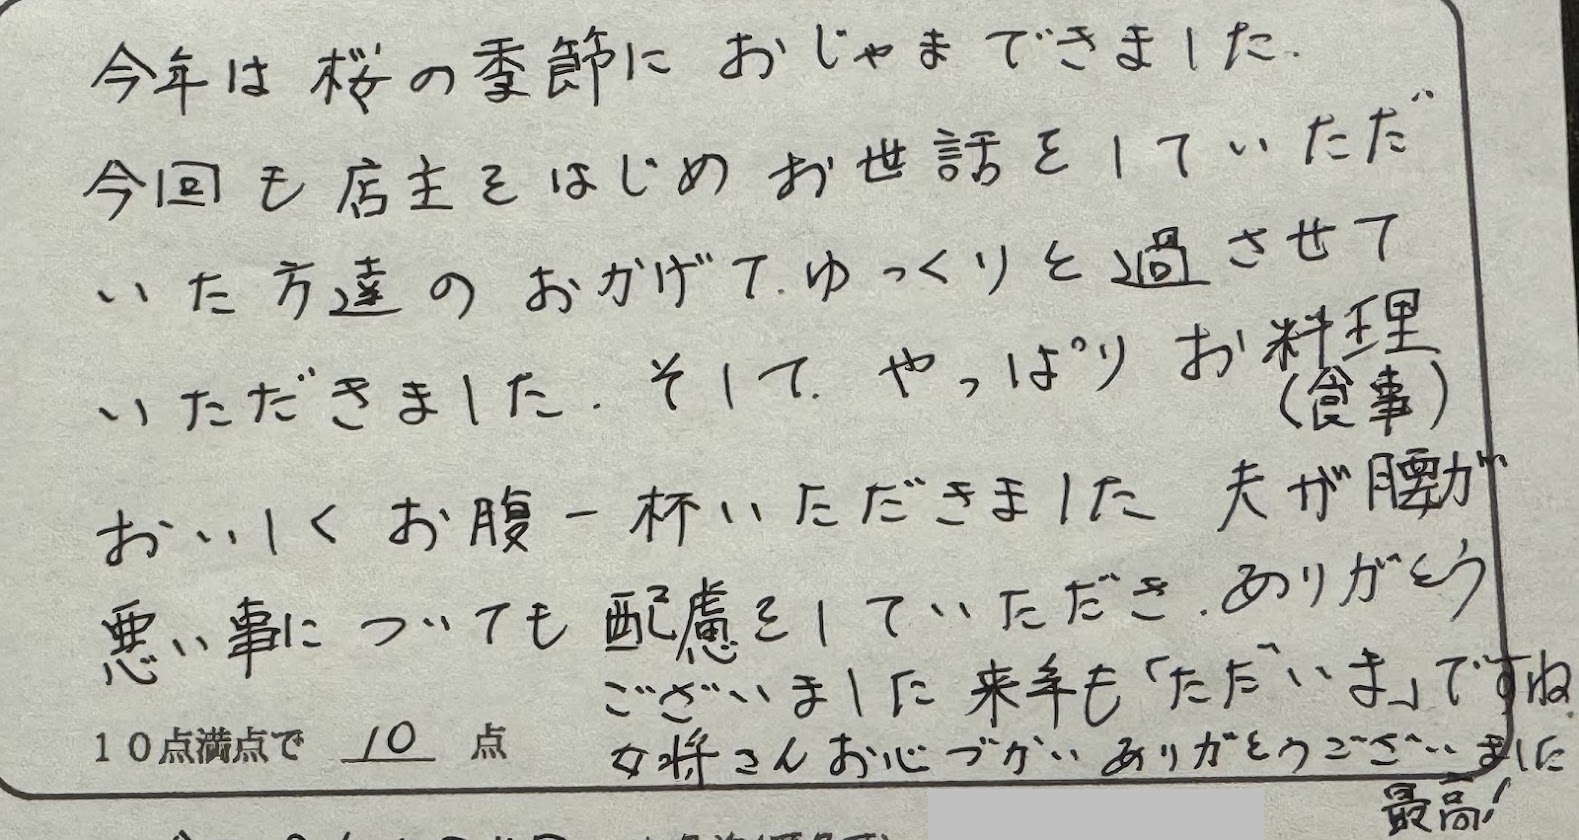 今年は桜の季節におじゃまできました.
今回も店主をはじめお世話をしていただ
いた方達のおかげで.ゆっくりと過させて
いただきました.そして.やっぱりお料理
(食事)
おいしくお腹一杯いただきました 夫が腰が
悪い事についても配慮をしていただき.ありがとう
ございました 来年も「ただいま」ですね.
10点満点で 10 点
女将さんお心づかいありがとうございました
最高!